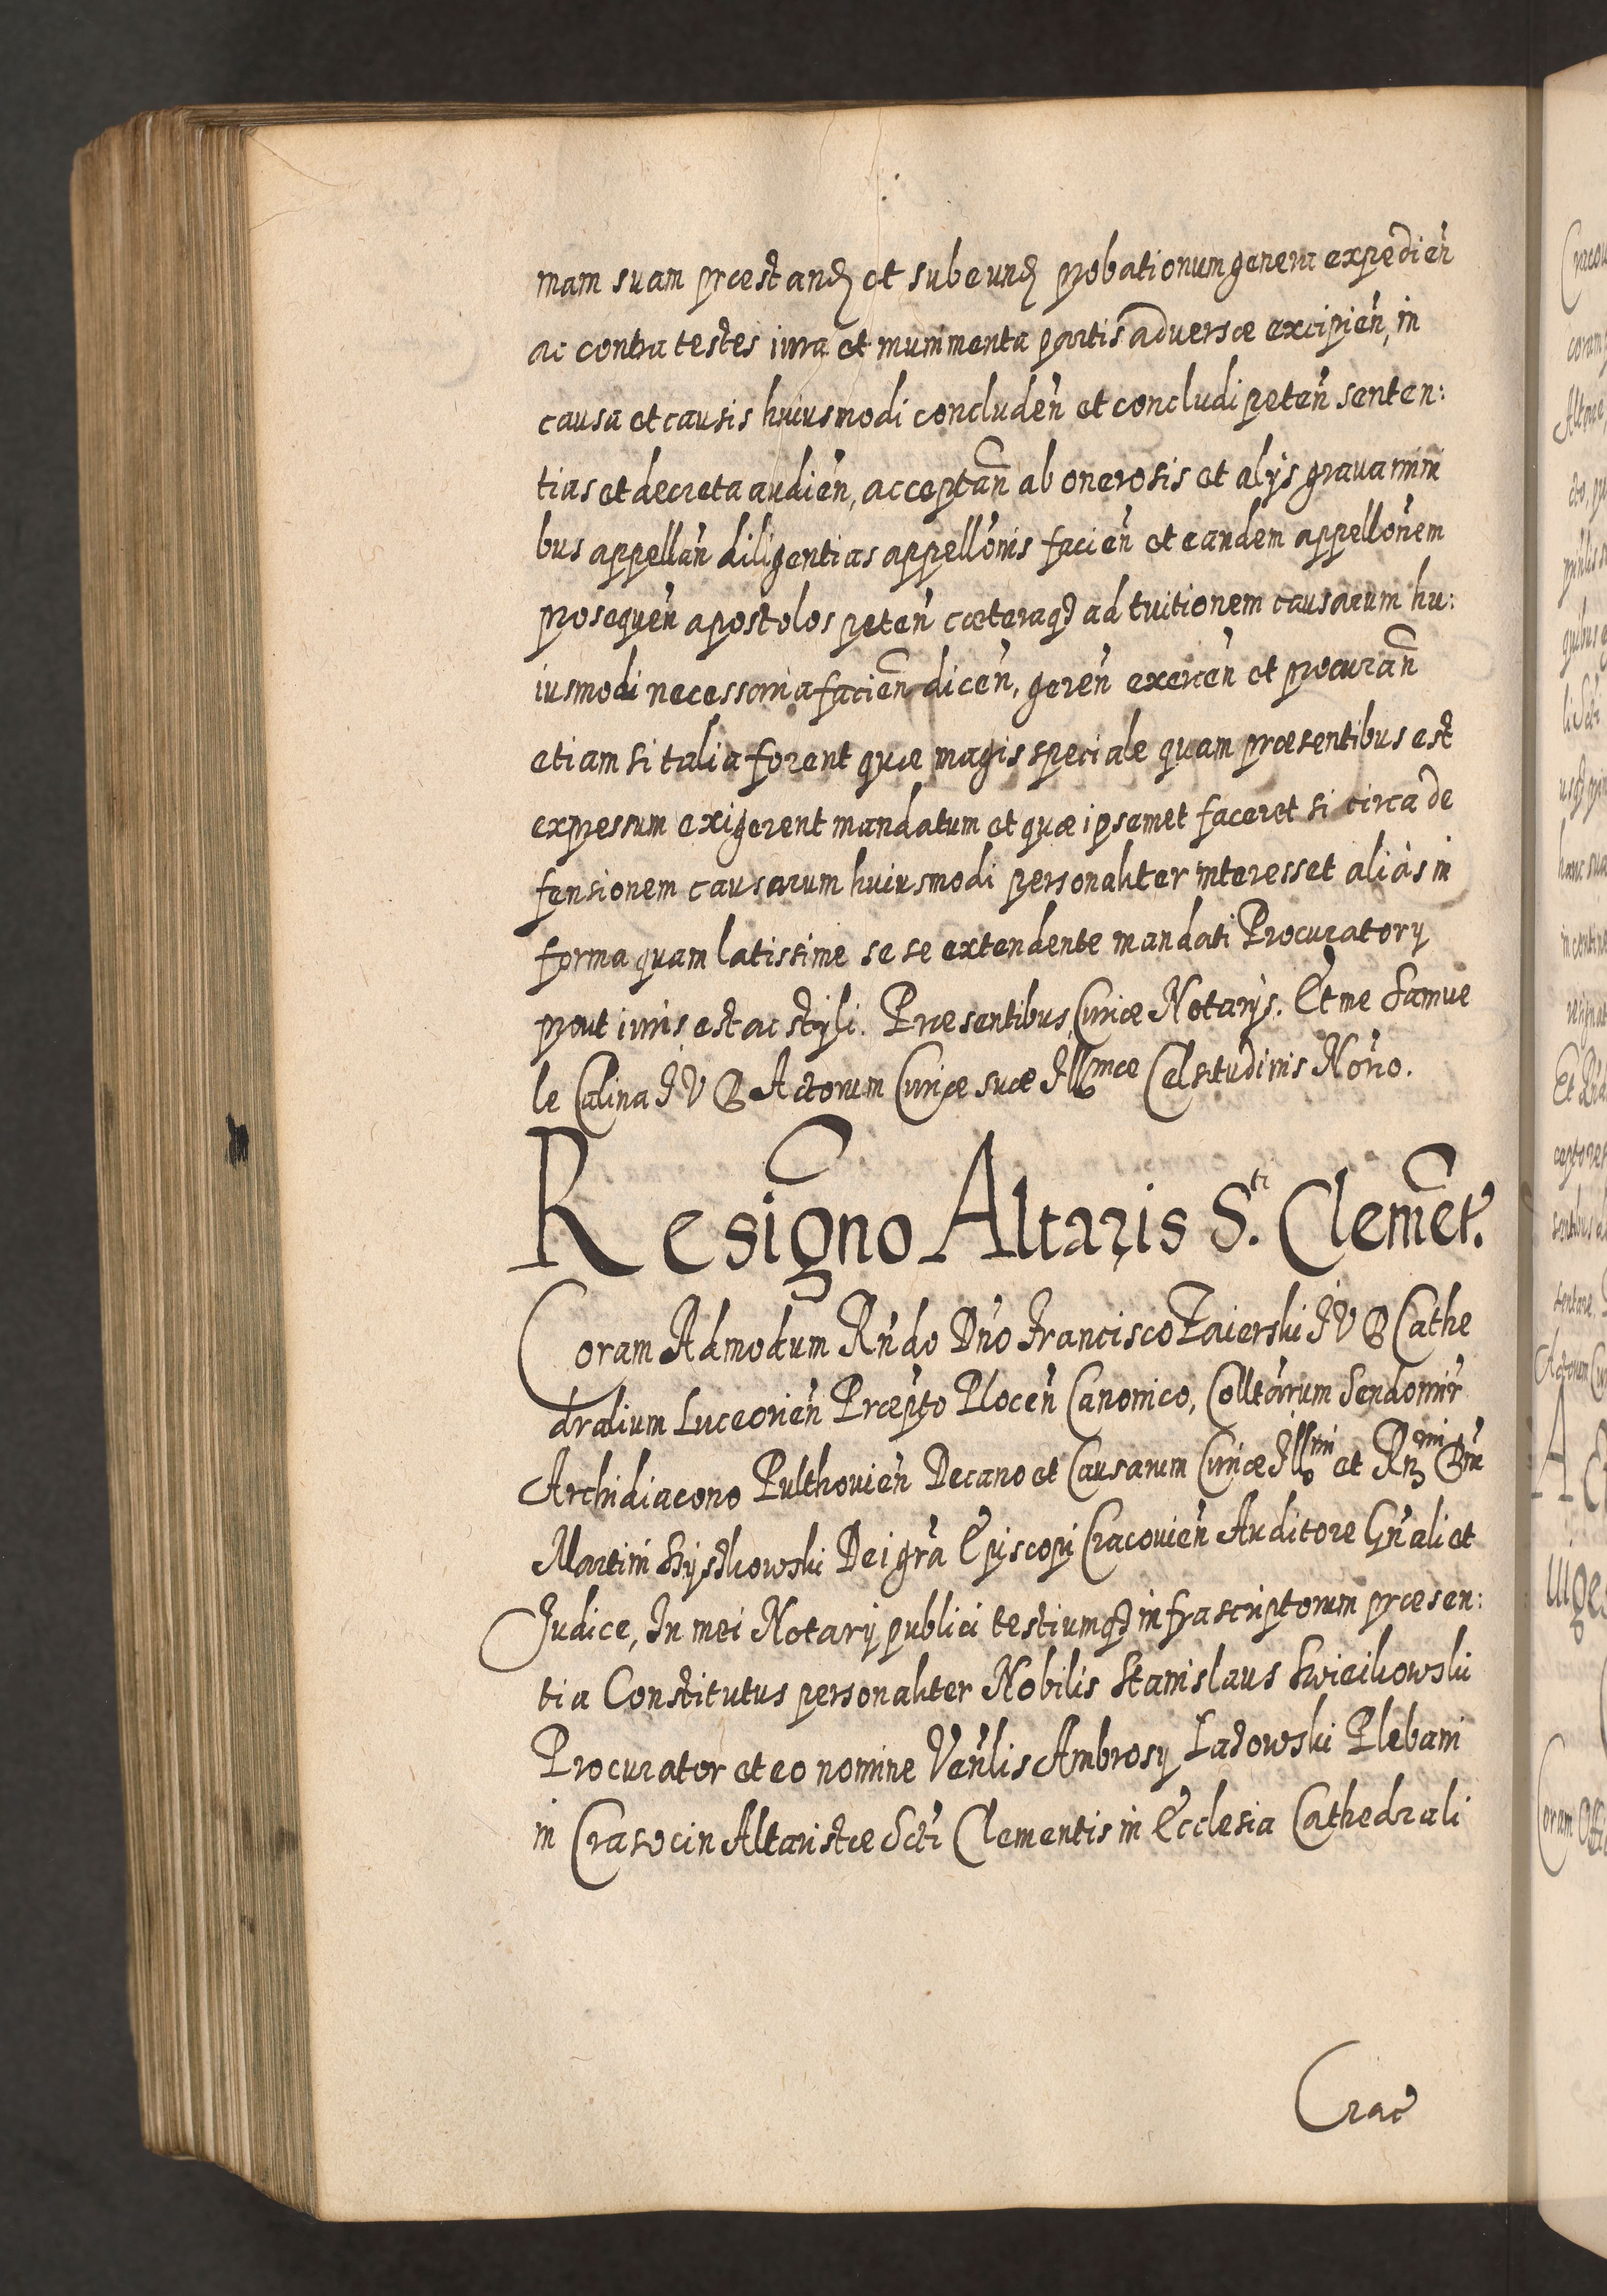 mam suam præstand et subeund probationum genera expedien
ac contra testes iura et munimenta partis adversæ excipien, in
causa et causis huiusmodi concluden et concludi peten senten:
tias et decreta audien, acceptan ab onerosis et alijs gravamini
bus appellan diligentias appellonis facien et eandem appellonem
prosequen apostolos peten cæteraq ad tuitionem causarum hu:
iusmodi necessaria facien dicen, geren exercen et procuran
etiam si talia forent quæ magis speciale quam præsentibus est
expressum exigerent mandatum et quæ ipsemet faceret si circa de
fensionem causarum huiusmodi personaliter interesset aliàs in
forma quam latissime se se extendente mandati Procuratory
prout iuris est ac styli. Præsentibus Curiæ Notarijs. Et me Samue
le Calina I V D Actorum Curiæ suæ Illmæ Celsitudinis Norio.
Resigno Altaris S.ti Clemēt.
Coram Admodum Rndo Dno Francisco Zaierski I V D Cathe
dralium Luceorien Præpto Plocen Canonico, Colltarum Sendomir
Archidiacono Pulthovien Decano et Causarum Curiæ Illmi et Rmi Dni
Martini Szyszkowski Dei gra Episcopi Cracovien Auditore Gnali et
Judice, In mei Notarij publici testiumq infrascriptorum præsen:
tia Constitutus personaliter Nobilis Stanislaus Swiecikowski
Procurator et eo nomine Venlis Ambrosy Ladowski Plebani
in Crasocin Altaristæ Scti Clementis in Ecclesia Cathedrali
Crac